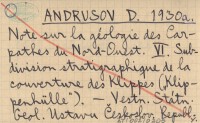 ANDRUSOV D. 1930a.
Note sur la géologie des Car-
pathes du Nord-Ouest. VI Sub-
division stratigraphique de la
couverture des Klippes (Klip-
penhülle"). — Vestn. Státn.
Geol. Ústavu Českoslov. Republ.